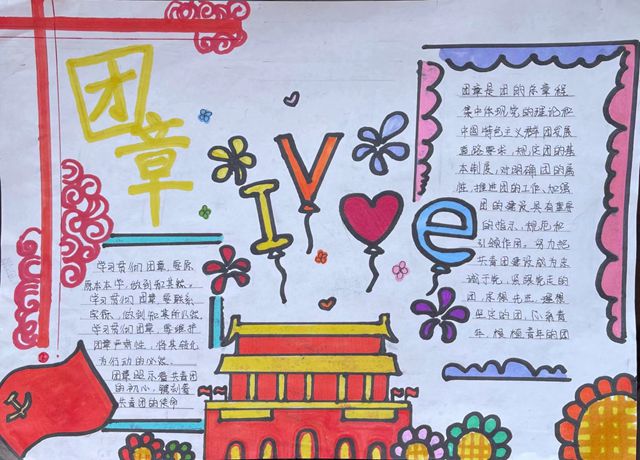 团章
I
V
e
学习我们团章,要原
原本本学,做到知其然。
学习我们团章,要联系
实际,做到知其所以然
学习我们团章,要维护
团章严肃性,将其转化
为们动的必然。
团章昭示着共青团
的初心,镌刻着
共青团的使命
团章是团的总章程
集中体现党的理论和
中国特色社会主义群团发展
道路要求,规定团的基
本制度,对明确团的属
性,推进团的工作、加强
团的建设具有重要
的指示、规范和
引领作用。努力把
共青团建设成为忠
诚于党,紧跟党走的
团,志
坚定的团,心系青
年、植根青年的团